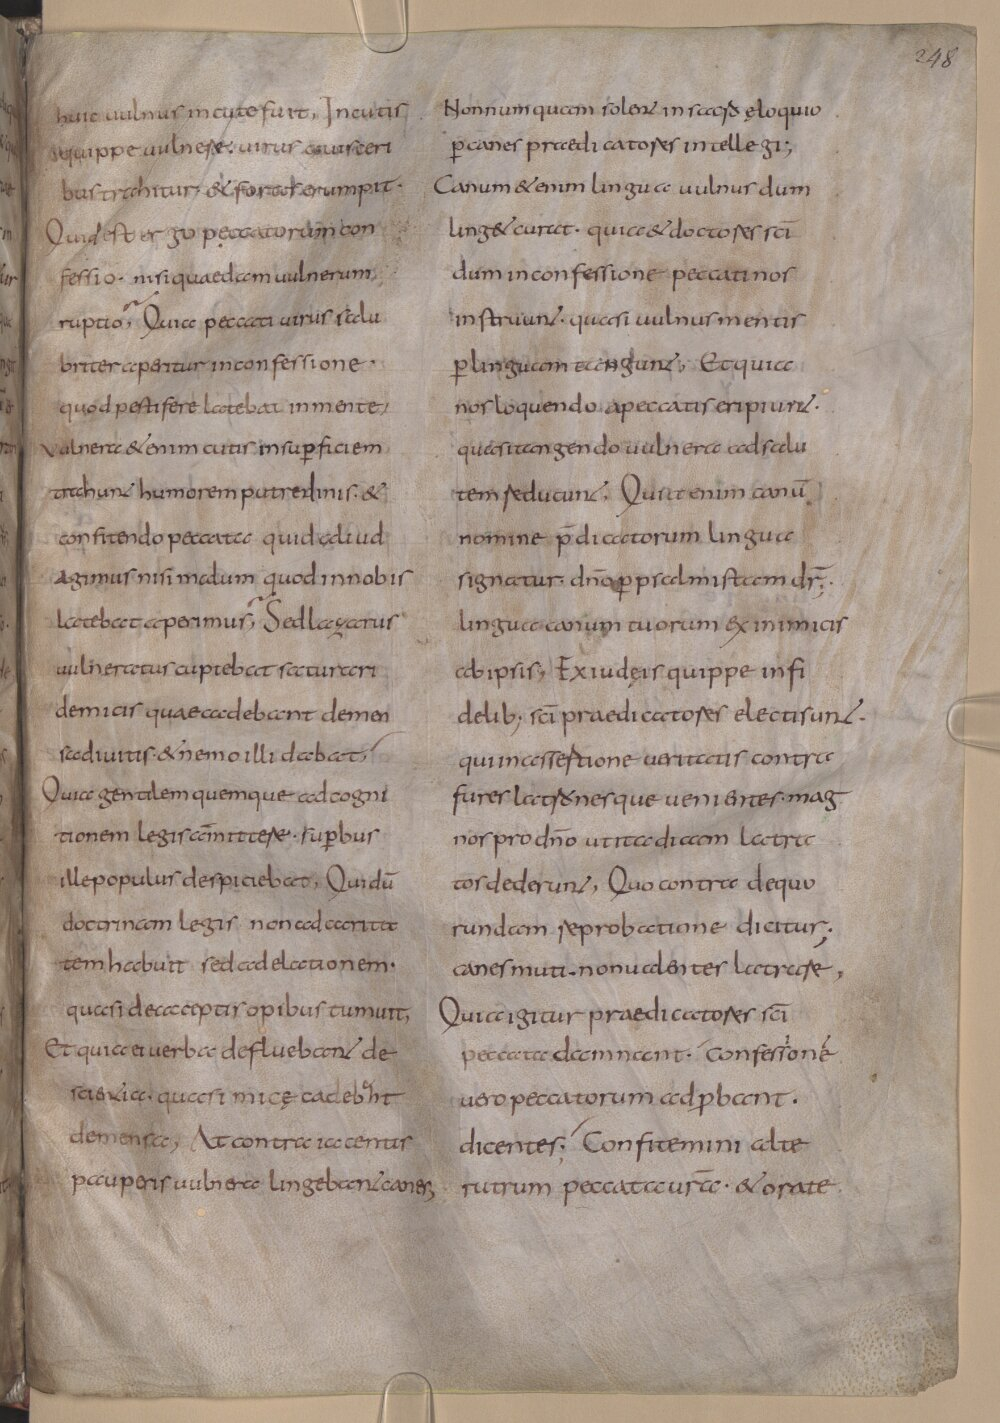 248
huic uulnus in cute fuit, In cutis
quippe uulnere. uirus a uisceri
bus trahitur, & foras erumpit.
Quid est ergo peccatorum con
fessio. nisi quaedam uulnerum
ruptio; Quia peccati uirus salu
briter aperitur in confessione.
quod pestifere latebat in mente;
Vulnera & enim cutis in sup̄ficiem
trahun& humorem putredinis. &
confitendo peccata quid ędiud
agimus nisi malum quod in nobis
latebat aperimus; Sed lazarus
uulneratus cupiebat saturari
de micis quae cadebant de men
sa diuitis. & nemo illi dabat;
Quia gentilem quemque ad cogni
tionem legis am̄ittere. sup̄bus
ille populus despiciebat, Qui dū
doctrinam legis non ad carita
tem habuit sed ad elationem.
quasi de acceptis opibus tumuit,
Et quia ei uerba deflueban& de
scientia. quasi micę cadebant
de mensa, At contra iacentis
pauperis uulnera lingeban& canes;
Nonnumquam solen& in sacro ęloquio
p̄ canes praedicatores intellegi;
Canum & enim lingua uulnus dum
ling& curat. quia & doctores sc̄i
dum in confessione peccati nos
instruun&. quasi uulnus mentis
p̄ linguam tangun&, Et quia
nos loquendo a peccatis eripiun&.
quasi tangendo uulnera ad salu
tem reducun&, Quia enim canū
nomine p̄dicatorum lingua
signatur. dn̄o p̄ psalmistam dr̄;
lingua canum tuorum ex inimicis
ab ipsis, Ex iudęis quippe infi
delib; sc̄i praedicatores electi sun&.
qui in assertione ueritatis contra
fures latronesque uenientes. mag
nos pro dn̄o ut ita dicam latra
tos dederun&, Quo contra de quo
rundam reprobatione dicitur;
canes muti. non ualentes latrare,
Quia igitur praedicatores sc̄i
peccata damnant. Confessionē
uero peccatorum adp̄bant.
dicentes; Confitemini alte
rutrum peccata ur̄a. & orate